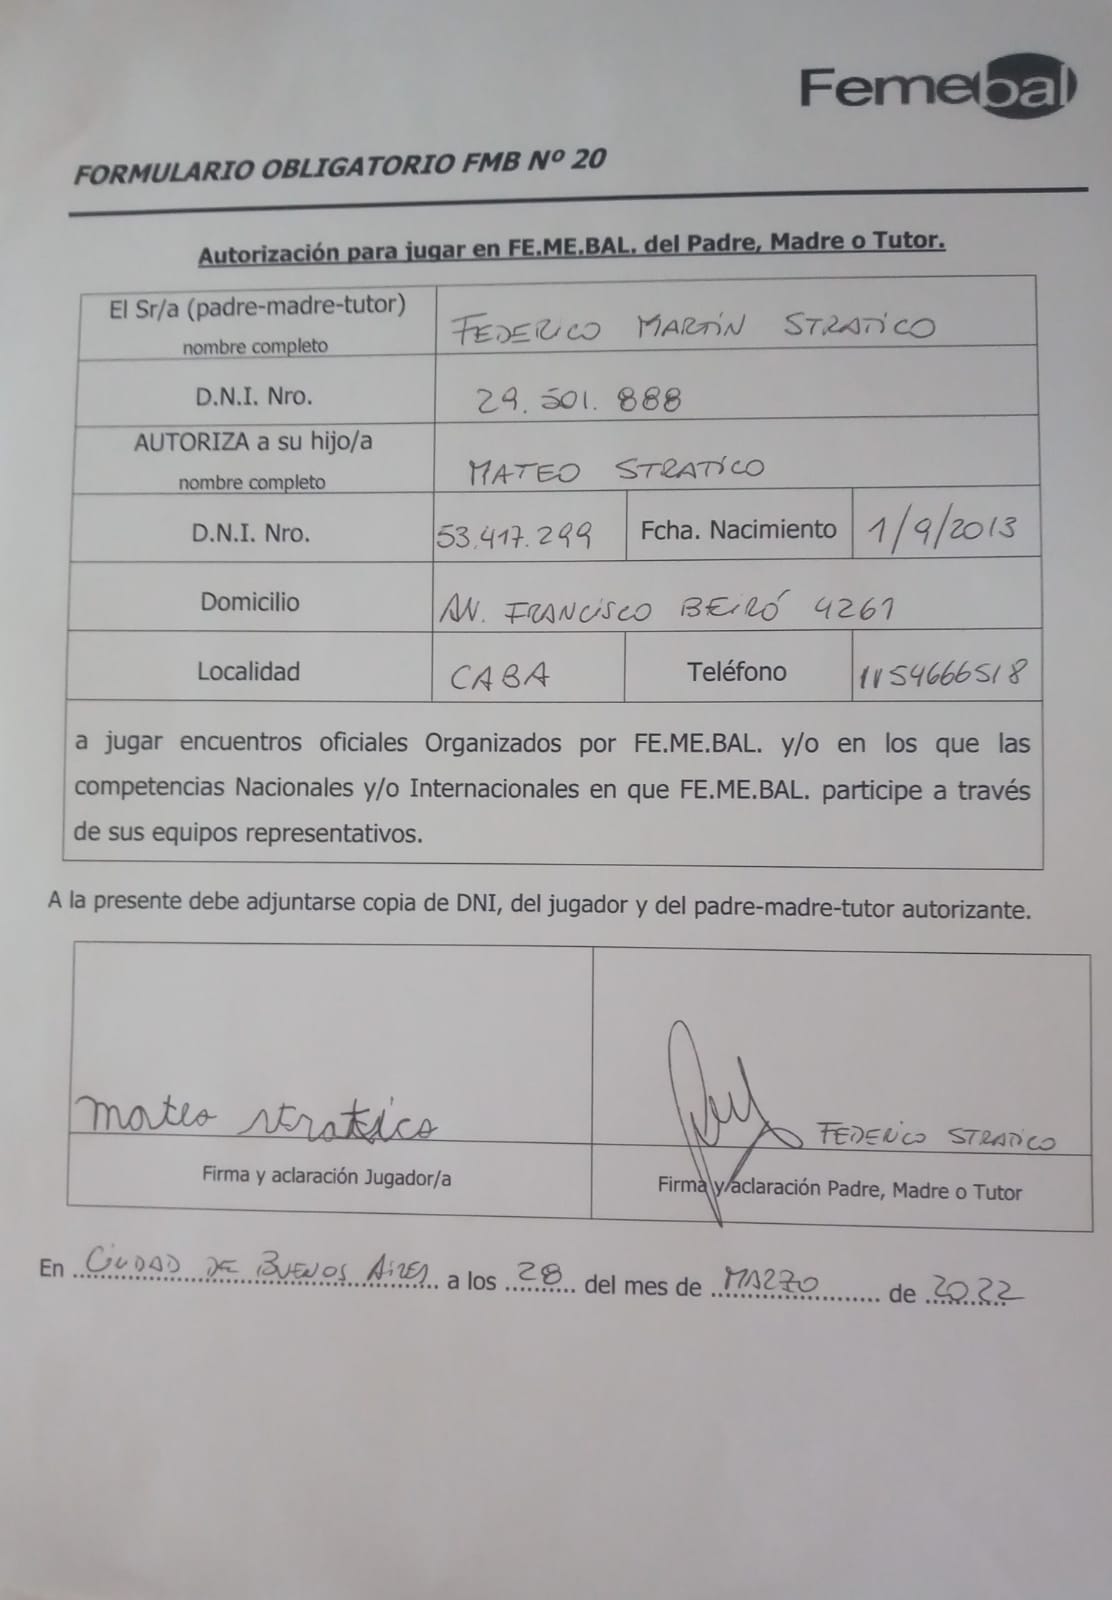 Femebal
FORMULARIO OBLIGATORIO FMB Nº 20
Autorización para jugar en FE.ME.BAL. del Padre, Madre o Tutor.
El Sr/a (padre-madre-tutor)
nombre completo
FEDERICO MARTÍN STRATICO
D.N.I. Nro.
29.501.888
AUTORIZA a su hijo/a
nombre completo
MATEO STRATICO
D.N.I. Nro.
53.417.299
Fcha. Nacimiento
1/9/2013
Domicilio
AV. FRANCISCO BEIRÓ 4261
Localidad
CABA
Teléfono
1154666518
a jugar encuentros oficiales Organizados por FE.ME.BAL. y/o en los que las
competencias Nacionales y/o Internacionales en que FE.ME.BAL. participe a través
de sus equipos representativos.
A la presente debe adjuntarse copia de DNI, del jugador y del padre-madre-tutor autorizante.
mateo stratico
FEDERICO STRATICO
Firma y aclaración Jugador/a
Firma y aclaración Padre, Madre o Tutor
En CIUDAD DE BUENOS AIRES a los 28 del mes de MARZO de 2022